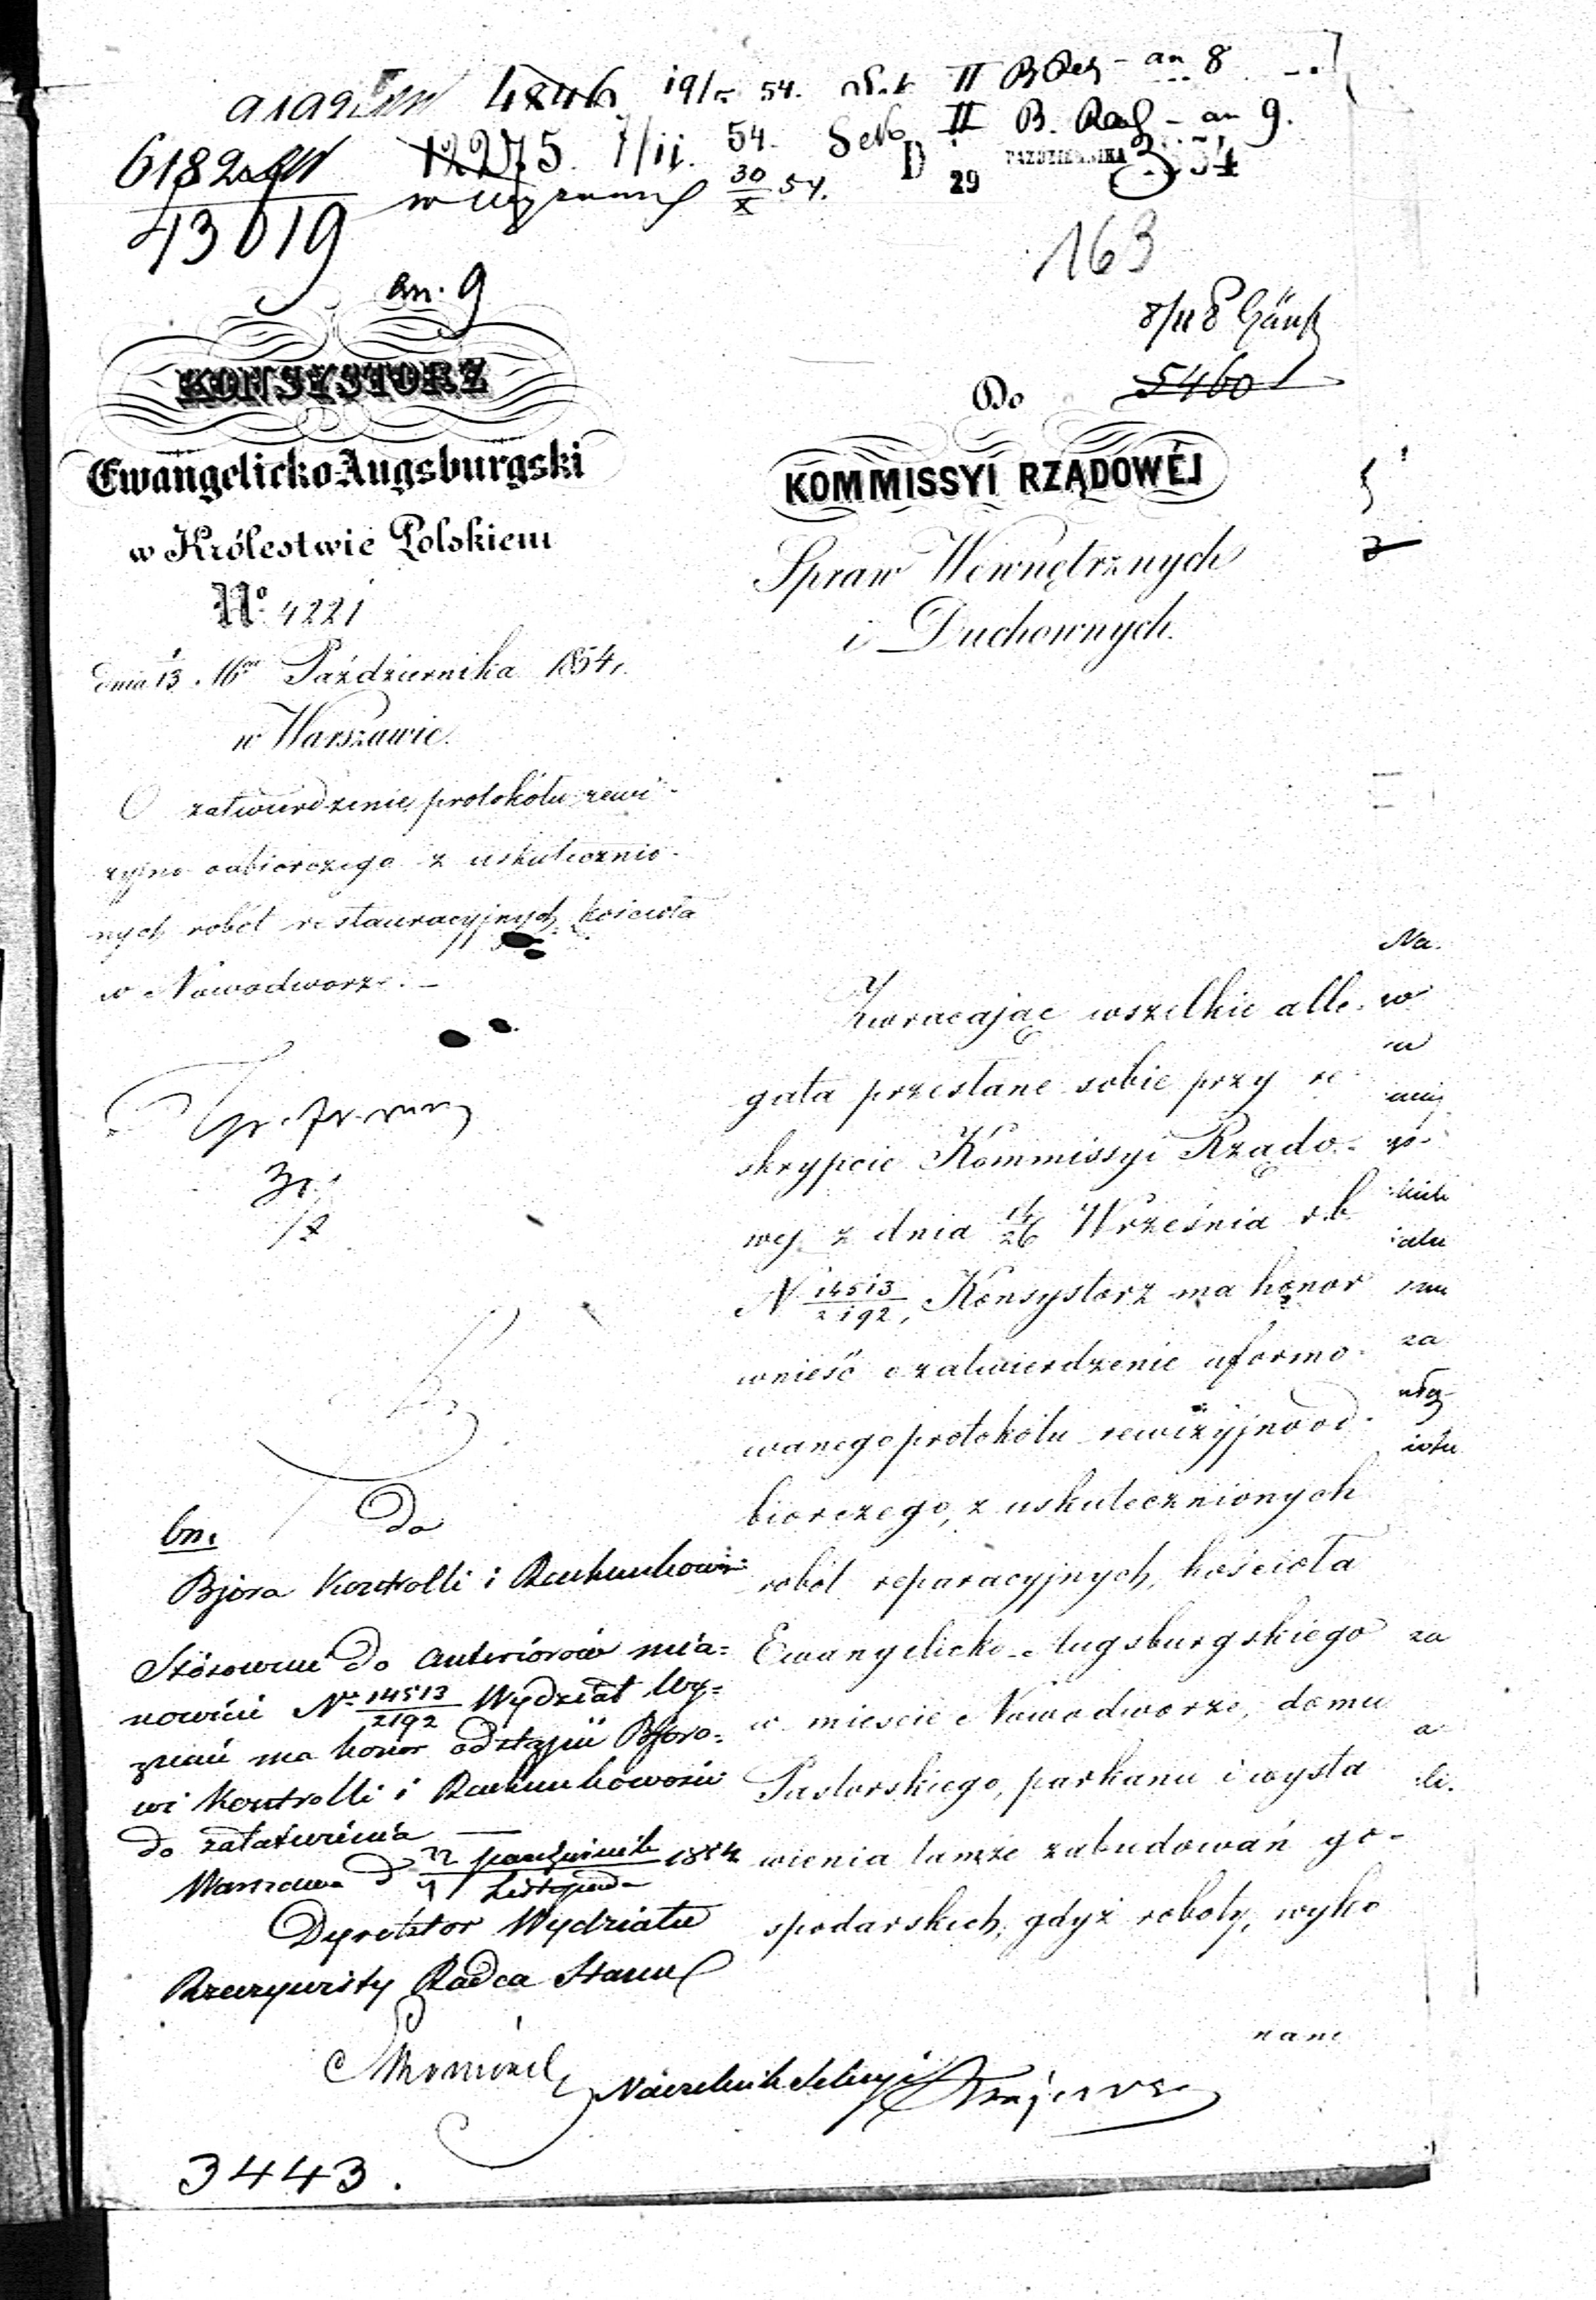 4846 19/ 54. II B Reg - an 8
6182 12275. 7/11. 54. Sek II B. Rach - an 9.
43019 30/X 54. D 29 PAZDZIERNIKA
163
an. 9
8/11
KONSYSTORZ
Ewangelicko-Augsburgski
w Królestwie Polskiem
No. 4221
dnia 13. 16go Października 1854 r.
w Warszawie.
O zatwierdzenie protokołu rewi-
zyjno odbiorczego z uskutecznio-
nych robót restauracyjnych kościoła
w Nowodworze. -
Do 5460
KOMMISSYI RZĄDOWÉJ
Spraw Wewnętrznych
i Duchownych.
Zwracając wszelkie alle-
gata przesłane sobie przy re-
skrypcie Kommissyi Rządo-
wej z dnia 14/26 Września r.b.
N 14513/2192, Konsystorz ma honor
wnieść o zatwierdzenie uformo-
wanego protokółu rewizyjno od-
biorczego, z uskutecznionych
robót reparacyjnych, kościoła
Ewangelicko-Augsburgskiego
w mieście Nowodworze, domu
Pastorskiego, parkanu i wysta
wienia tamże zabudowań go-
spodarskich, gdyż roboty, wyko
nane
bn. Do
Bjóra Kontrolli i Rachunkowoś:
Stósownie do anteriorów mia-
nowicie No 14513/2192 Wydział Wy-
znań ma honor odstąpić Bjóro-
wi Kontrolli i Rachunkowości
do załatwienia
Warszawa d 22 Października / Listopada 1854
Dyrektor Wydziału
Rzeczywisty Radca Stanu
Naczelnik Sekcyi
3443.